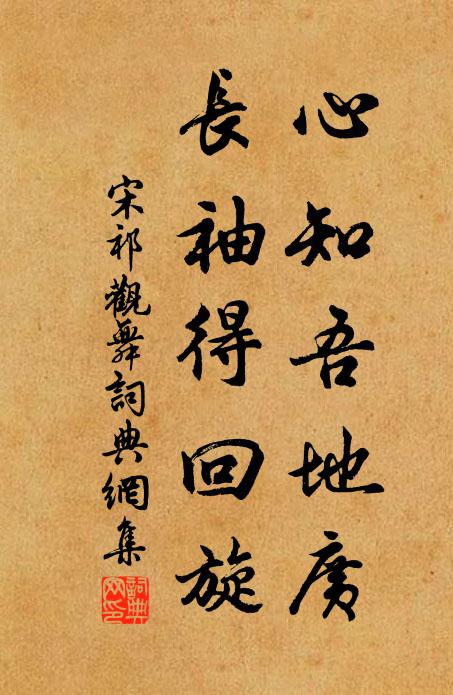 心知吾地廣
長袖得回旋
宋祁觀舞詞典網集
詞典
网印